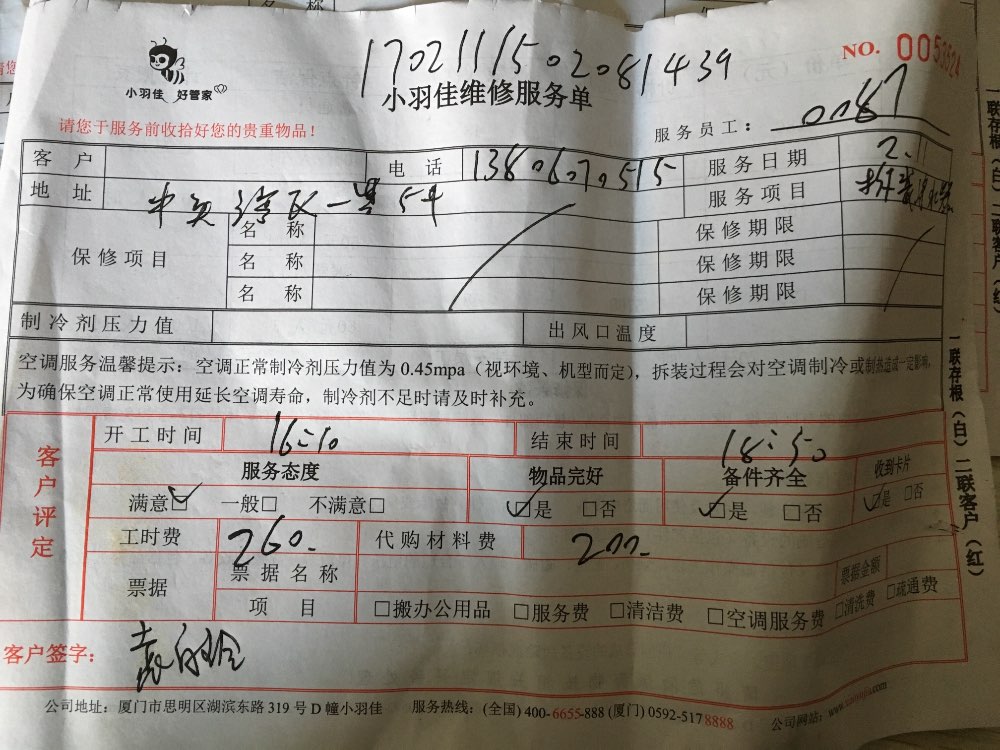 1702111502081439
NO. 0053524
小羽佳 好管家
小羽佳维修服务单
请您于服务前收拾好您的贵重物品！
服务员工： 0087
客户 电话 13806070515 服务日期 2.11
地址 一里 54 服务项目
保修项目 名称 保修期限
名称 保修期限
名称 保修期限
制冷剂压力值 出风口温度
空调服务温馨提示：空调正常制冷剂压力值为 0.45mpa（视环境、机型而定），拆装过程会对空调制冷或制热造成一定影响，
为确保空调正常使用延长空调寿命，制冷剂不足时请及时补充。
客户评定
开工时间 16:10 结束时间 18:50
服务态度 物品完好 备件齐全 收到卡片
满意☑ 一般□ 不满意□ ☑是 □否 ☑是 □否 ☑是 □否
工时费 260.- 代购材料费 200.-
票据 票据名称 票据金额
项目 □搬办公用品 □服务费 □清洁费 □空调服务费 □清洗费 □疏通费
客户签字：
公司地址：厦门市思明区湖滨东路 319 号 D 幢小羽佳 服务热线：(全国) 400-6655-888 (厦门) 0592-5178888 公司网站：www.xiaoyujia.com
一联存根（白）二联客户（红）